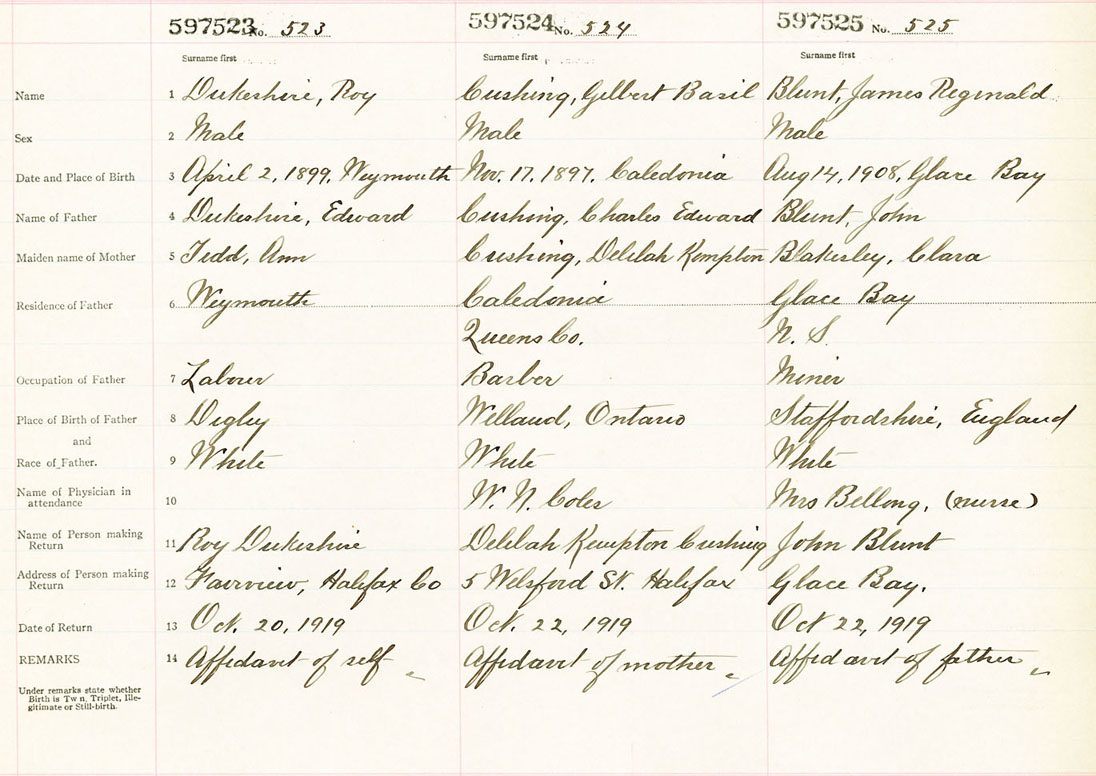 597523 No. 523 597524 No. 524 597525 No. 525
Surname first Surname first Surname first
Name 1 Dukeshire, Roy Cushing, Gilbert Basil Blunt, James Reginald
Sex 2 Male Male Male
Date and Place of Birth 3 April 2, 1899, Weymouth Nov. 17, 1897, Caledonia Aug 14, 1908, Glace Bay
Name of Father 4 Dukeshire, Edward Cushing, Charles Edward Blunt, John
Maiden name of Mother 5 Tedd, Ann Cushing, Delilah Kempton Blakesley, Clara
Residence of Father 6 Weymouth Caledonia Glace Bay
Queens Co. N. S.
Occupation of Father 7 Labourer Barber Miner
Place of Birth of Father 8 Digby Welland, Ontario Staffordshire, England
and
Race of Father. 9 White White White
Name of Physician in
attendance 10 W. N. Coles Mrs Bellong, (nurse)
Name of Person making
Return 11 Roy Dukeshire Delilah Kempton Cushing John Blunt
Address of Person making
Return 12 Fairview, Halifax Co 5 Welsford St. Halifax Glace Bay.
Date of Return 13 Oct. 20, 1919 Oct. 22, 1919 Oct 22, 1919
REMARKS 14 Affidavit of self Affidavit of mother Affidavit of father
Under remarks state whether
Birth is Tw n, Triplet, Ille-
gitimate or Still-birth.